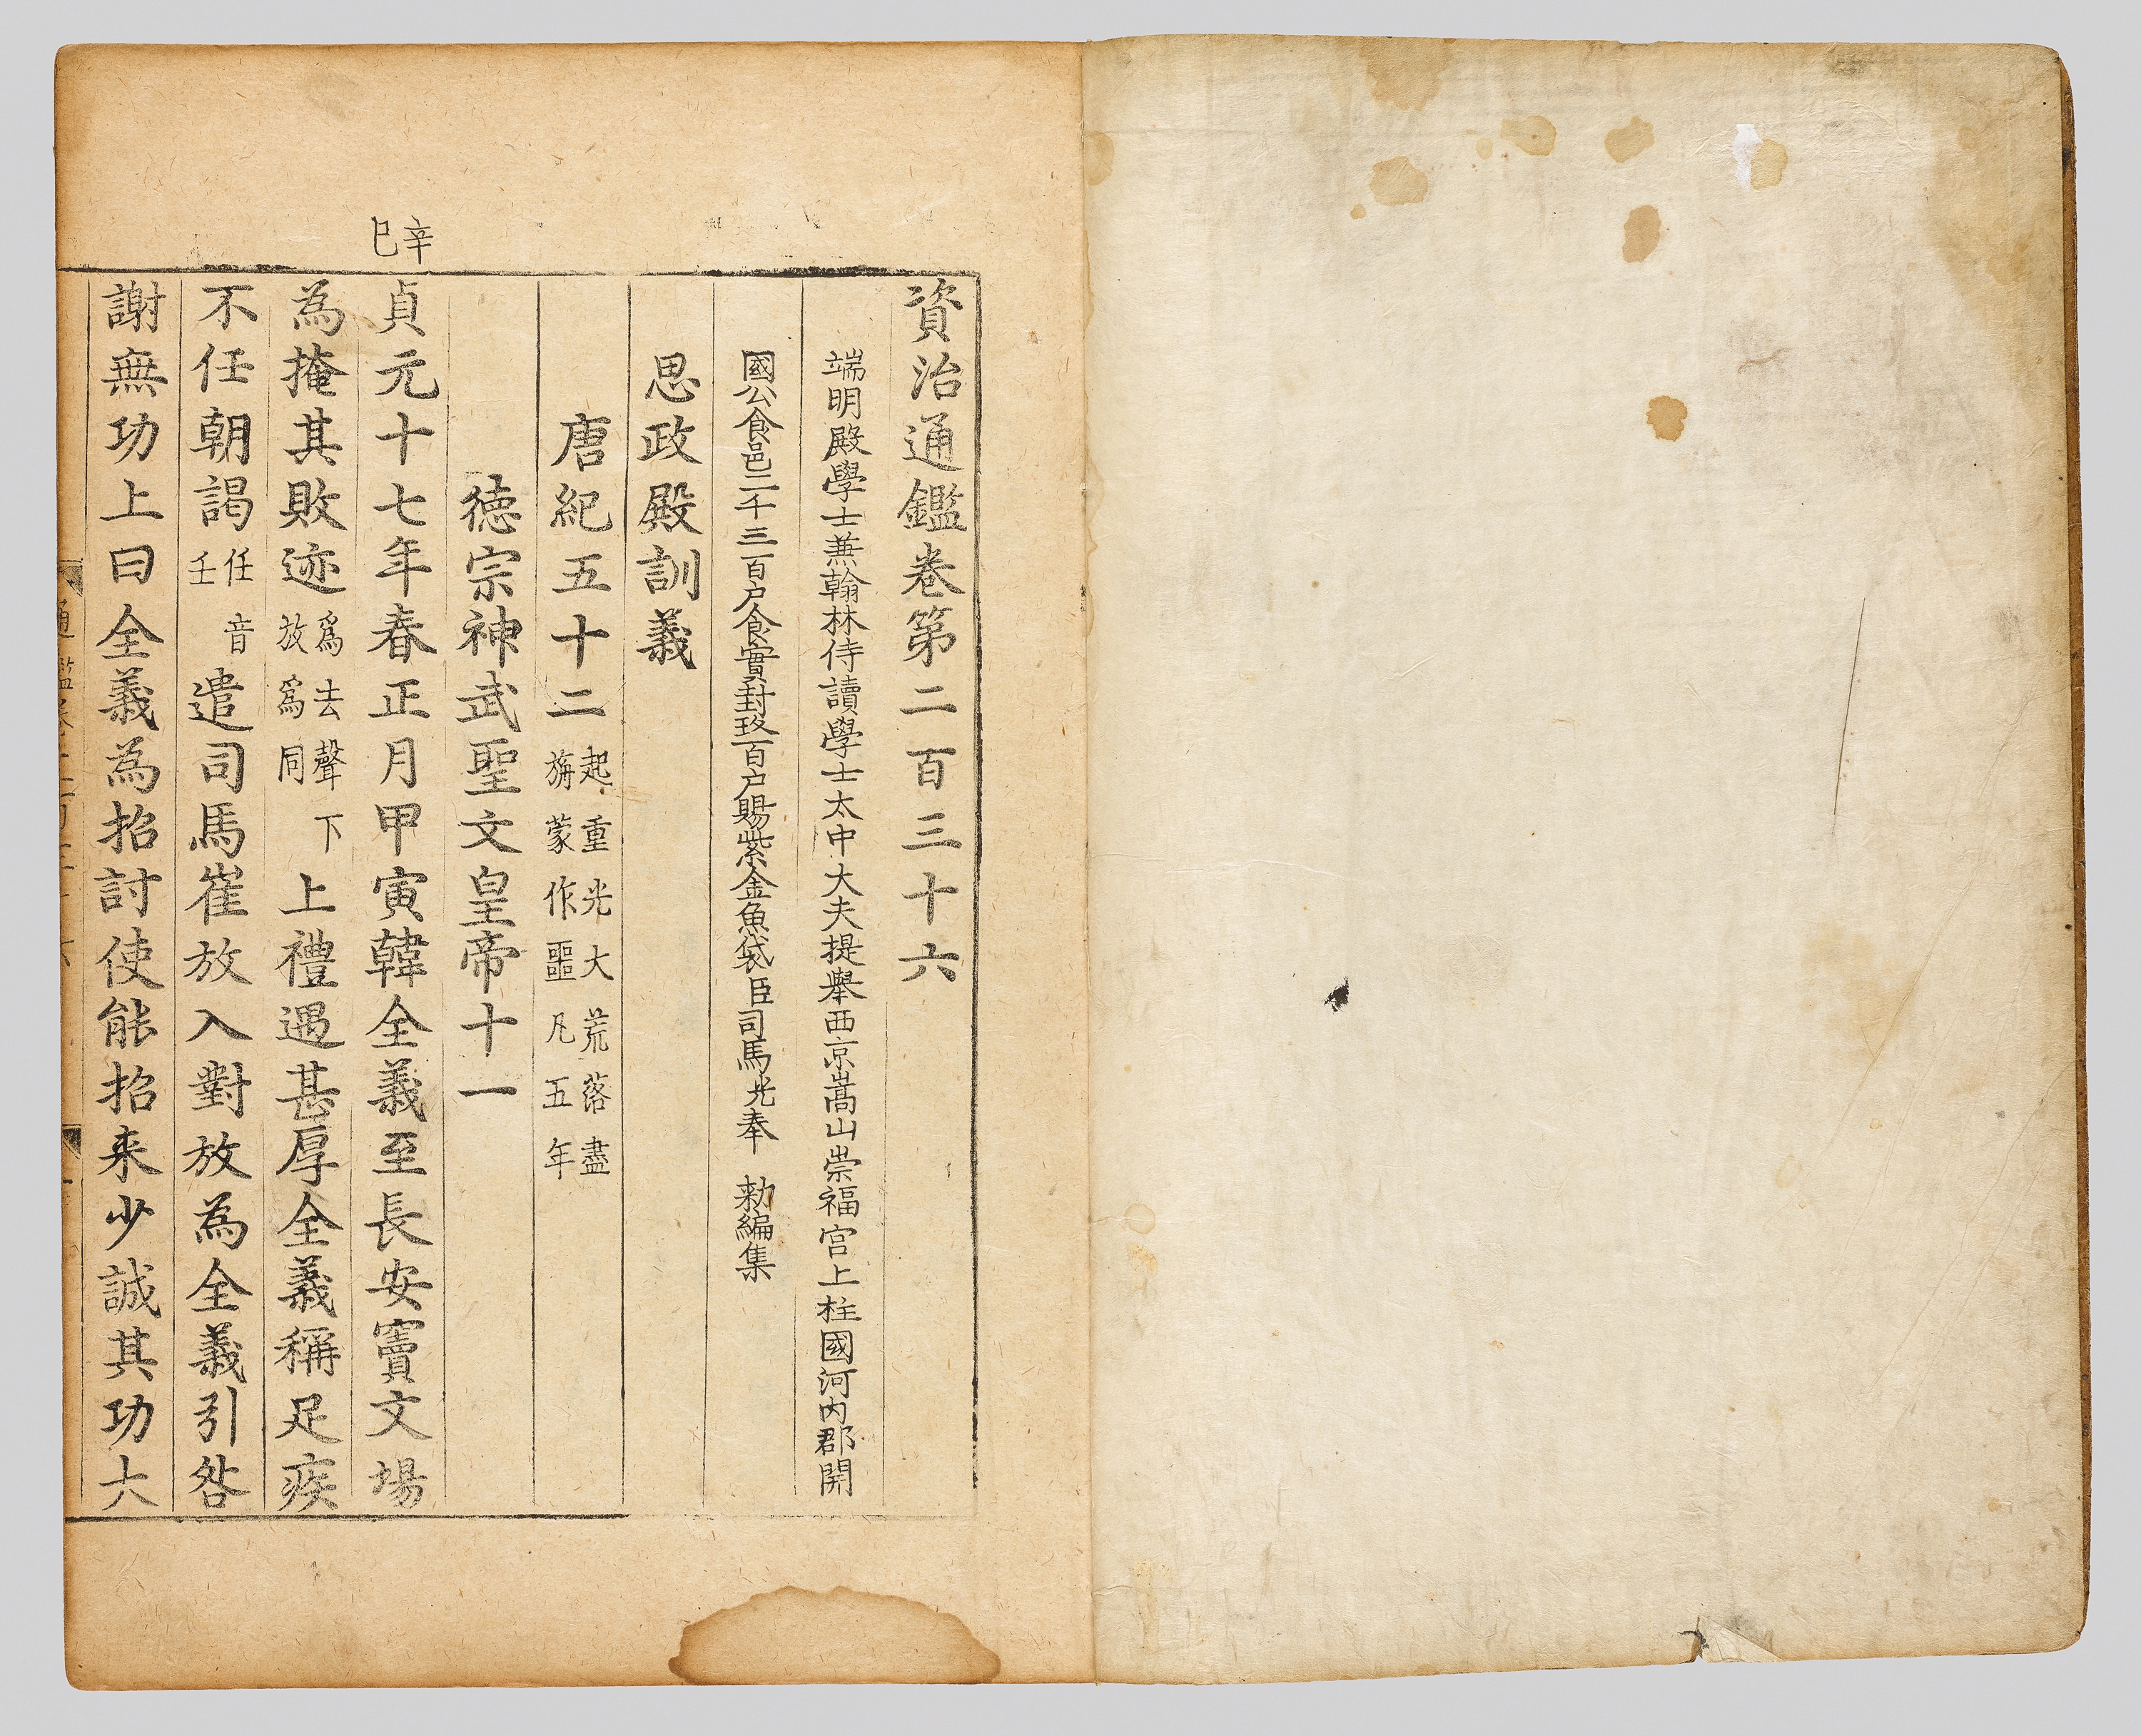 資治通鑑卷第二百三十六
端明殿學士兼翰林侍讀學士太中大夫提舉西京嵩山崇福宮上柱國河內郡開
國公食邑二千三百户食實封玖百户賜紫金魚袋臣司馬光奉 勑編集
思政殿訓義
唐紀五十二起重光大荒落盡旃蒙作噩凡五年
德宗神武聖文皇帝十一
辛巳
貞元十七年春正月甲寅韓全義至長安竇文場
為掩其敗迹爲去聲下放爲同上禮遇甚厚全義稱足疾
不任朝謁任音壬遣司馬崔放入對放為全義引咎
謝無功上曰全義為招討使能招来少誠其功大